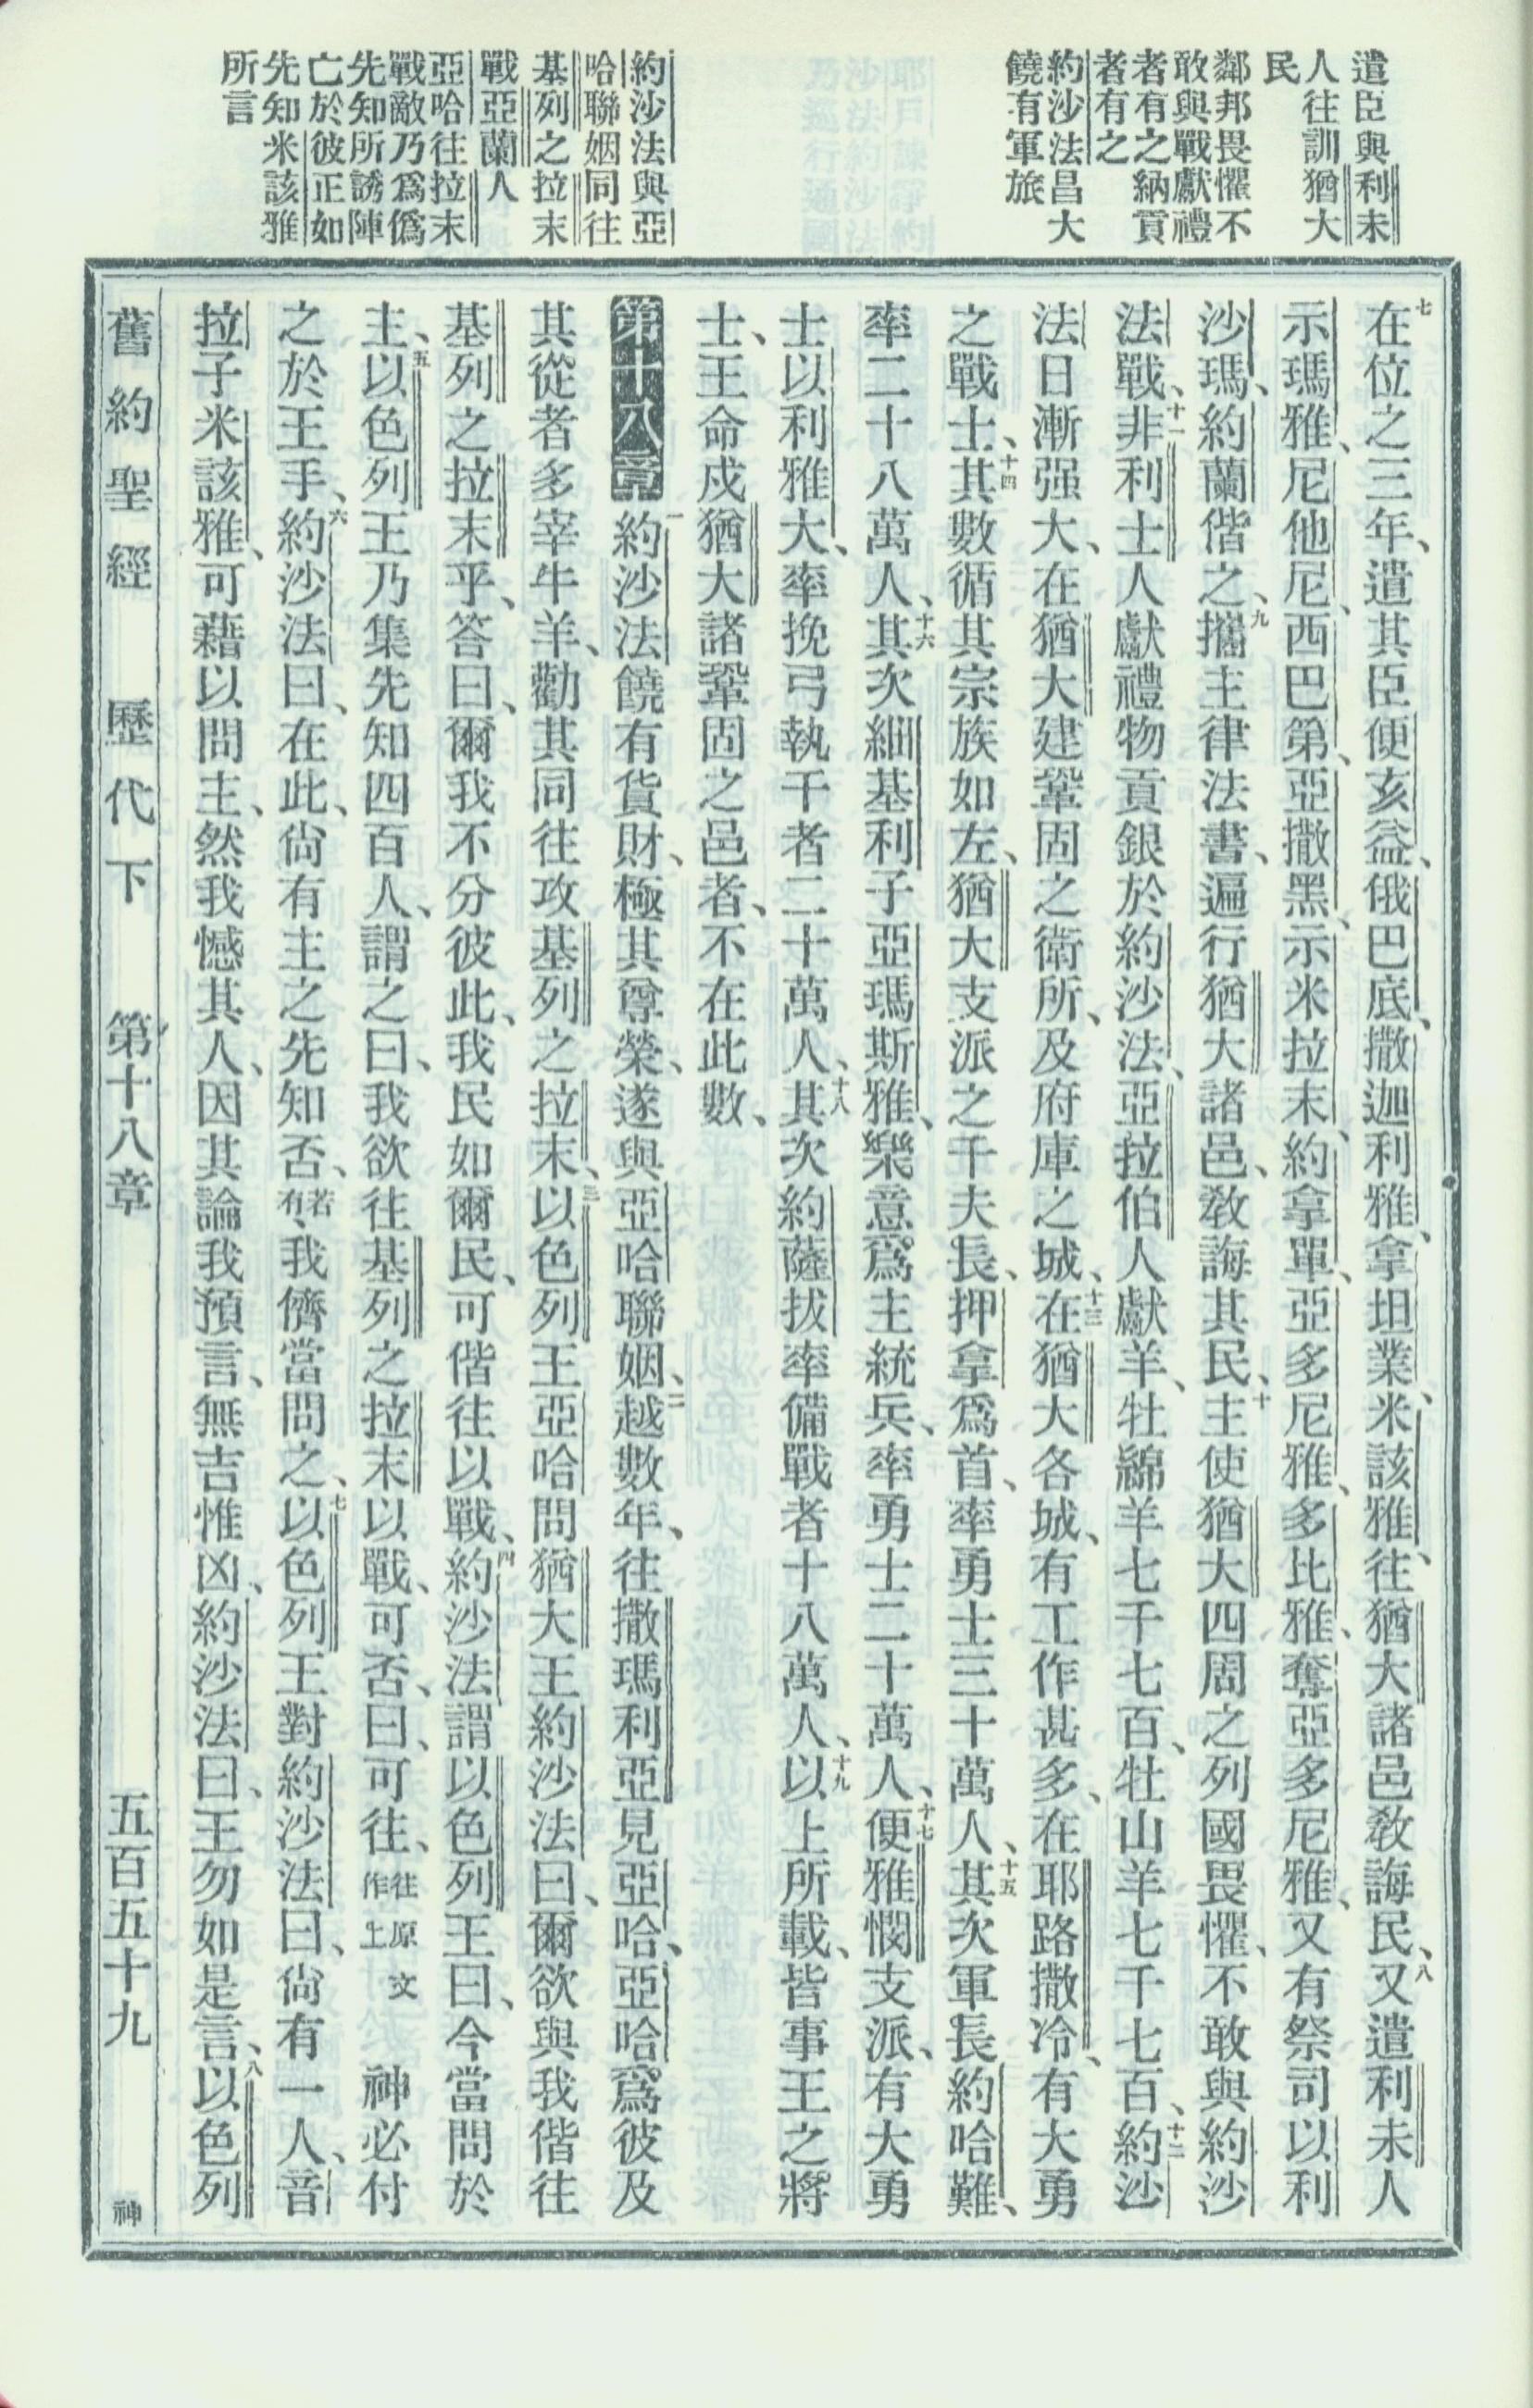 遣臣與利未
人往訓猶大
民
鄰邦畏懼不
敢與戰獻禮
者有之納貢
者有之
約沙法昌大
饒有軍旅
約沙法與亞
哈聯姻同往
基列之拉末
戰亞蘭人
亞哈往拉末
戰敵乃爲僞
先知所誘陣
亡於彼正如
先知米該雅
所言
七在位之三年、遣其臣便亥益、俄巴底、撒迦利雅、拿坦業、米該雅、往猶大諸邑敎誨民、八又遣利未人
示瑪雅、尼他尼、西巴第、亞撒黑、示米拉末、約拿單、亞多尼雅、多比雅、奪亞多尼雅、又有祭司以利
沙瑪、約蘭偕之、九攜主律法書、遍行猶大諸邑、敎誨其民、十主使猶大四周之列國畏懼、不敢與約沙
法戰、十一非利士人獻禮物貢銀於約沙法、亞拉伯人獻羊、牡綿羊七千七百、牡山羊七千七百、十二約沙
法日漸强大、在猶大建鞏固之衛所、及府庫之城、十三在猶大各城、有工作甚多、在耶路撒冷、有大勇
之戰士、十四其數循其宗族如左、猶大支派之千夫長、押拿爲首、率勇士三十萬人、十五其次軍長約哈難、
率二十八萬人、十六其次細基利子亞瑪斯雅、樂意爲主統兵、率勇士二十萬人、十七便雅憫支派、有大勇
士以利雅大、率挽弓執干者二十萬人、十八其次約薩拔率備戰者十八萬人、十九以上所載、皆事王之將
士、王命戍猶大諸鞏固之邑者、不在此數、
第十八章 一約沙法饒有貨財、極其尊榮、遂與亞哈聯姻、二越數年、往撒瑪利亞見亞哈、亞哈爲彼及
其從者多宰牛羊、勸其同往攻基列之拉末、三以色列王亞哈問猶大王約沙法曰、爾欲與我偕往
基列之拉末乎、答曰、爾我不分彼此、我民如爾民、可偕往以戰、四約沙法謂以色列王曰、今當問於
主、五以色列王乃集先知四百人、謂之曰、我欲往基列之拉末以戰、可否、曰、可往、往原文作上 神必付
之於王手、六約沙法曰、在此、尙有主之先知否、若有、我儕當問之、七以色列王對約沙法曰、尙有一人、音
拉子米該雅、可藉以問主、然我憾其人、因其論我預言、無吉惟凶、約沙法曰、王勿如是言、八以色列
舊約聖經 歷代下 第十八章 五百五十九 神